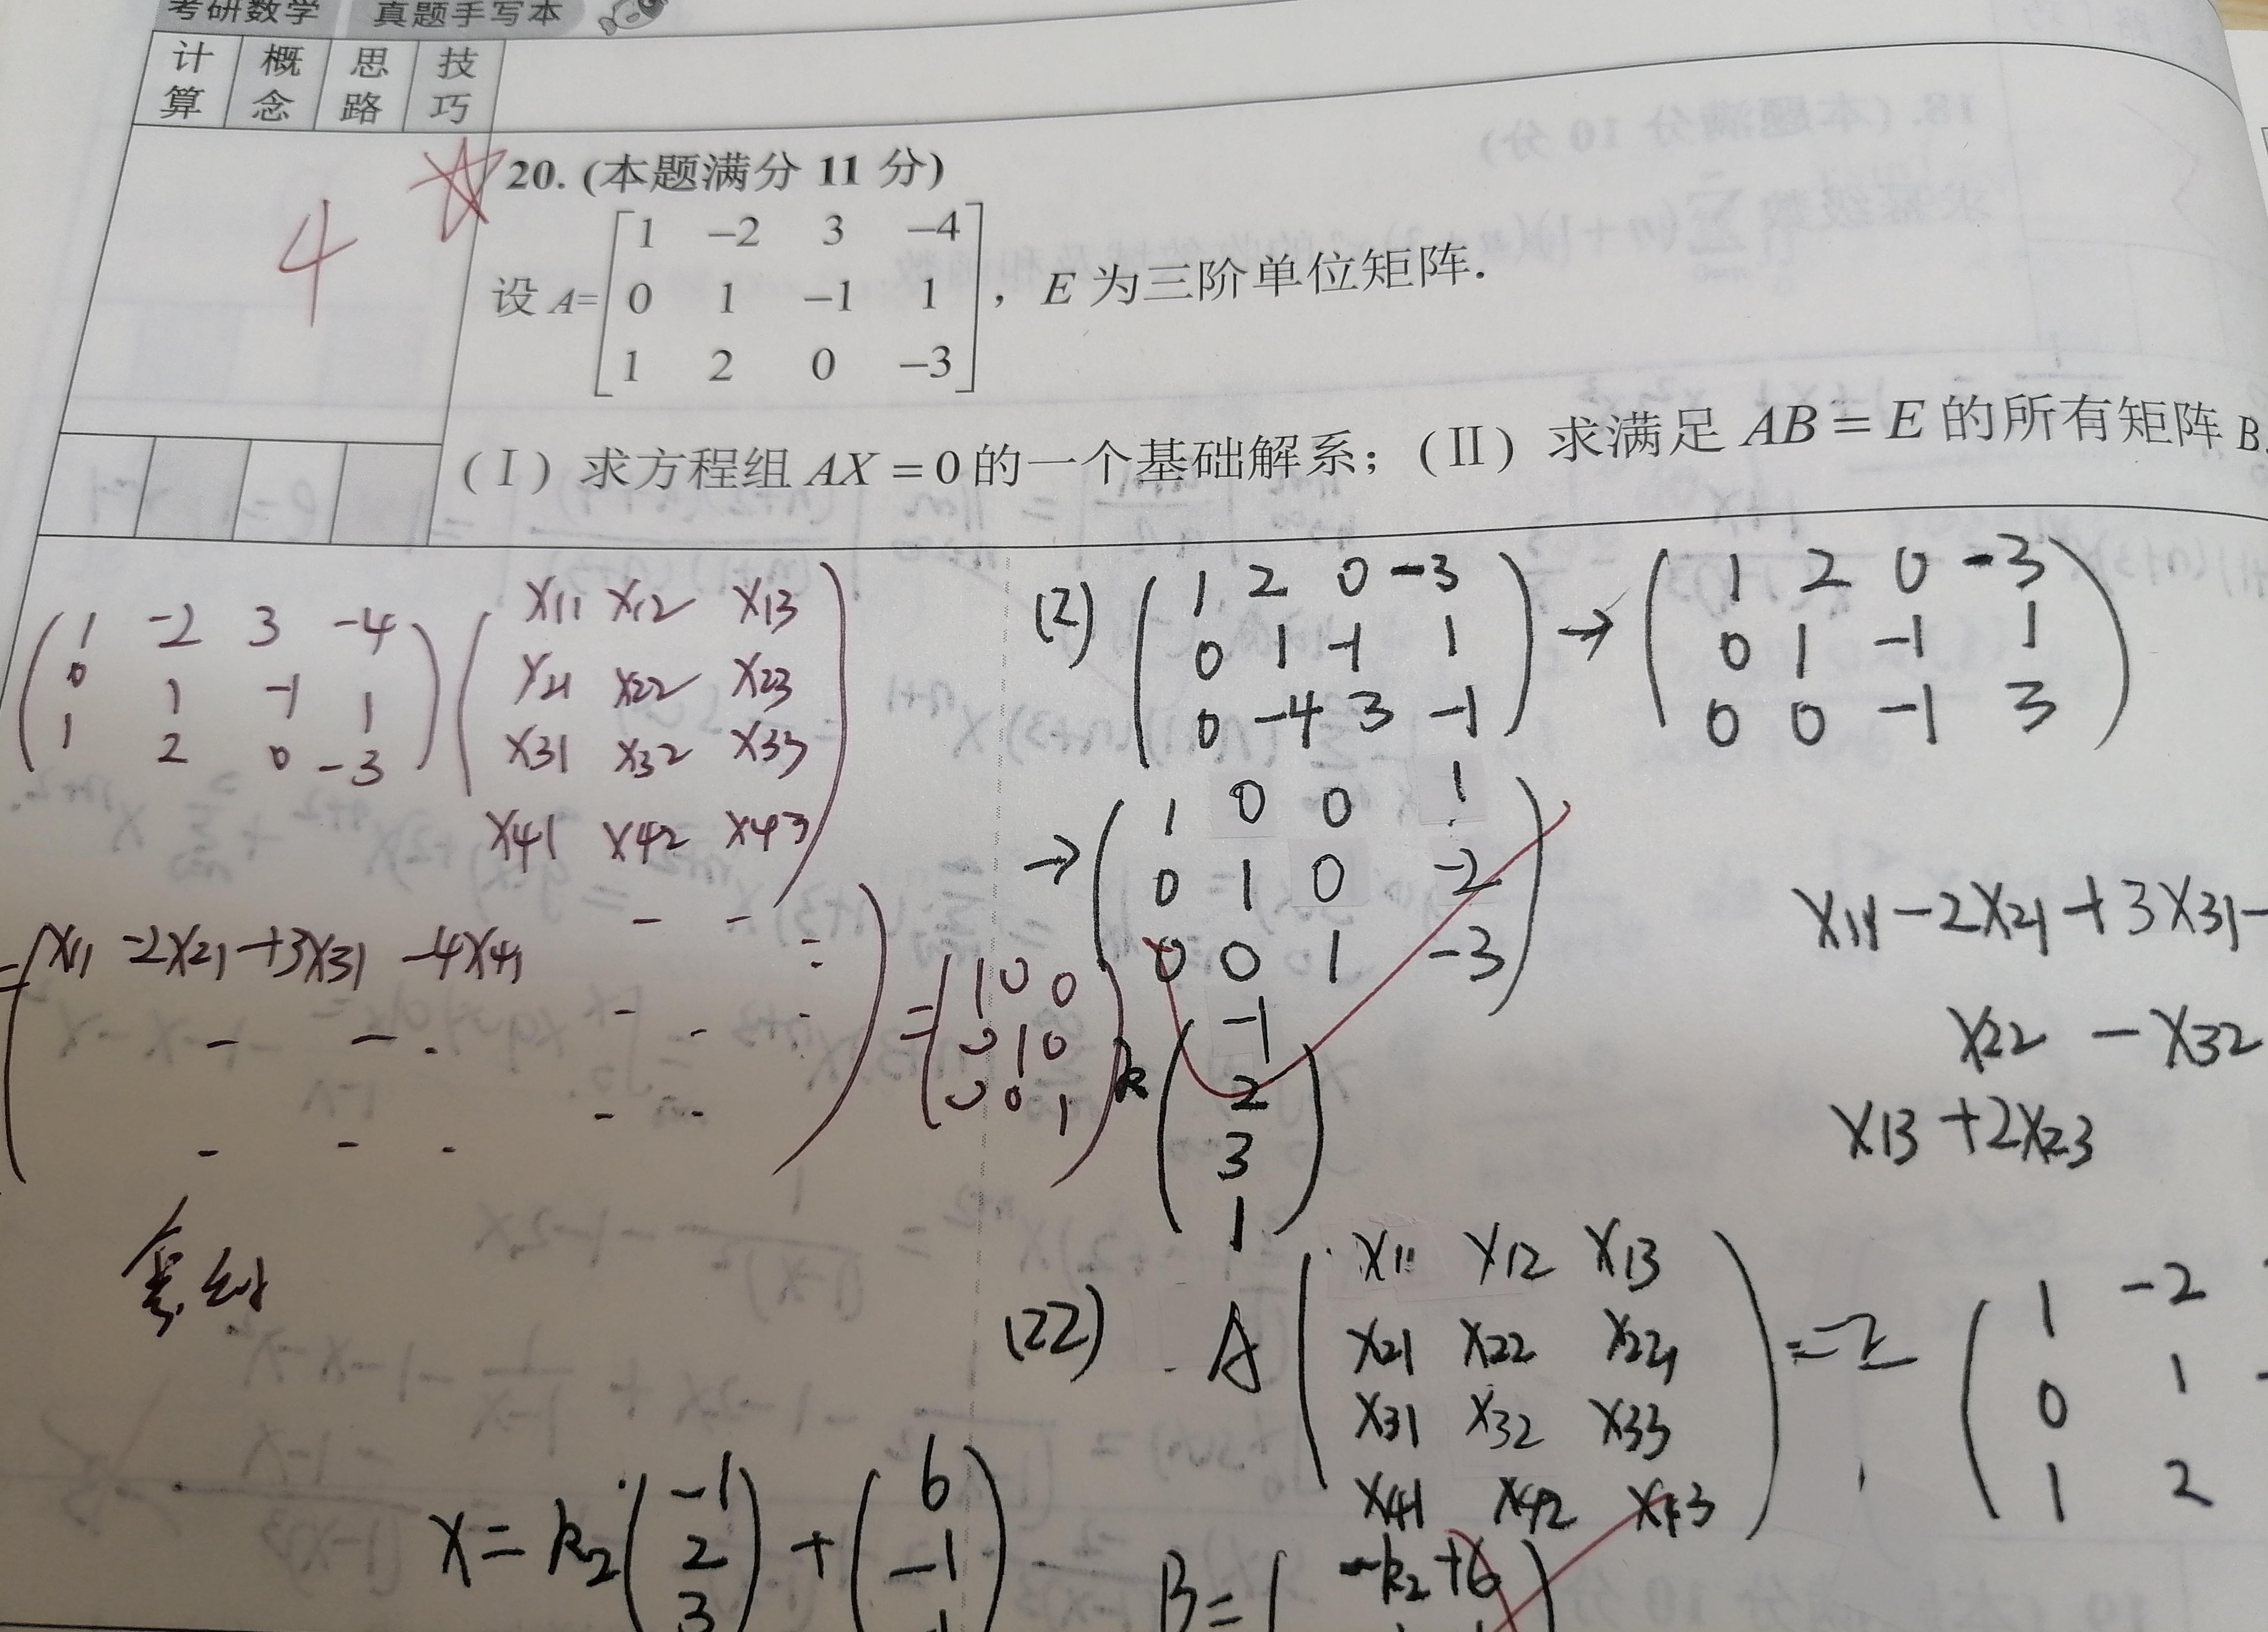 考研数学 真题手写本
计算 概念 思路 技巧
4
20. (本题满分 11 分)
设 A= [1 −2 3 −4
0 1 −1 1
1 2 0 −3] , E 为三阶单位矩阵.
(Ⅰ) 求方程组 AX = 0 的一个基础解系; (Ⅱ) 求满足 AB = E 的所有矩阵 B.
(1 -2 3 -4
0 1 -1 1
1 2 0 -3)
(x11 x12 x13
x21 x22 x23
x31 x32 x33
x41 x42 x43)
= (x11 -2x21 +3x31 -4x41 - -
- - . - -
- - . - -)
= (1 0 0
0 1 0
0 0 1)
(2) (1 2 0 -3
0 1 -1 1
0 -4 3 -1)
→ (1 2 0 -3
0 1 -1 1
0 0 -1 3)
→ (1 0 0 1
0 1 0 -2
0 0 1 -3)
k (-1
2
3
1)
x11 -2x21 +3x31-
x22 - x32
x13 +2x23
(22) A (x11 x12 x13
x21 x22 x23
x31 x32 x33
x41 x42 x43) = E
(1 -2
0 1 -
1 2
x = k2 (-1
2
3
+ (6
-1
B = ( -k2 +6